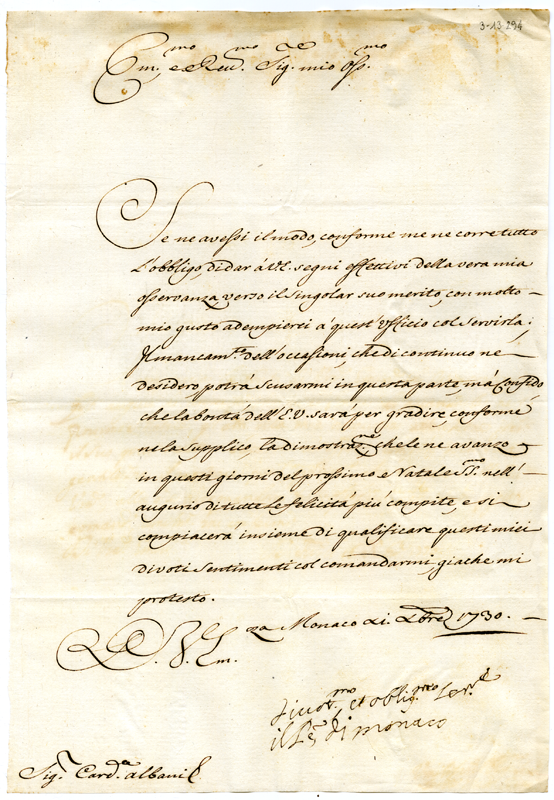 3-13.294
Em.mo e Reu.mo Sig.re mio Oss.mo
Se ne avessi il modo, conforme me ne corre tutto
l'obbligo, di dar à V.E. segni effettivi della vera mia
osservanza verso il singolar suo merito, con molto
mio gusto adempierei à quest'Vfficio col servirla;
Il mancam.to dell'occasioni, che di continuo né
desidero, potrà scusarmi in questa parte, mà Confido
che la bontà dell'E.V. sarà per gradire, conforme
ne la supplico, la dimostra.ne, che le ne avanzo
in questi giorni del prossimo e Natale SS.mo nell'
augurio di tutte le felicità più compite, e si
compiacerà insieme di qualificare questi miei
divoti sentimenti col comandarmi, giache mi
protesto.
D. V. Em.za Monaco li Xbre 1730.
diuot.mo et oblig.mo ser.re
il P.e di monaco
Sig.r Card.le albani